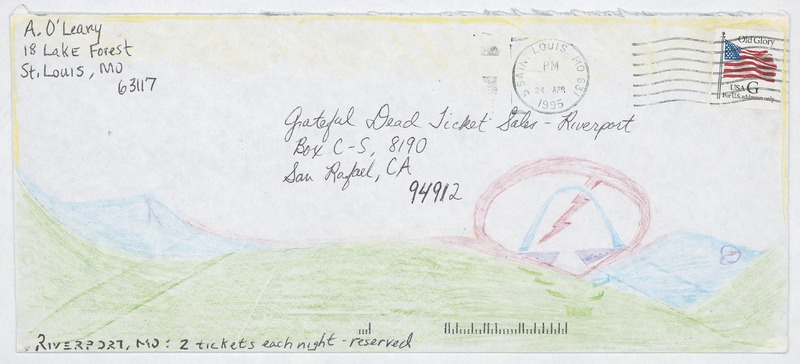 A. O'Leary
18 Lake Forest
St. Louis, MO
63117
SAINT LOUIS MO 631
PM
26 APR
1995
Old Glory
USA G
For U.S. addresses only
Grateful Dead Ticket Sales - Riverport
Box C-S, 8190
San Rafael, CA
94912
RIVERPORT, MO: 2 tickets each night - reserved